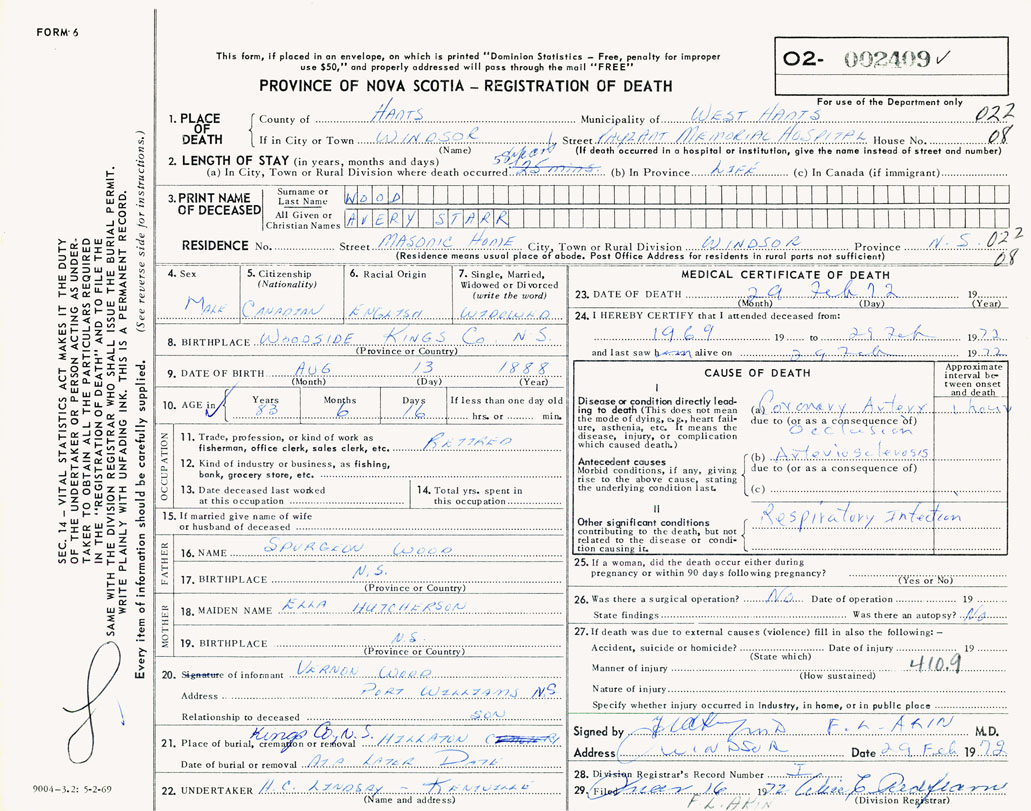 FORM 6
This form, if placed in an envelope, on which is printed "Dominion Statistics - Free, penalty for improper
use $50," and properly addressed will pass through the mail "FREE"
PROVINCE OF NOVA SCOTIA - REGISTRATION OF DEATH
O2- 002409 ✓
For use of the Department only
1. PLACE OF DEATH
County of HANTS Municipality of WEST HANTS 022
If in City or Town WINDSOR Street PAYZANT MEMORIAL HOSPITAL House No. 08
(Name) (If death occurred in a hospital or institution, give the name instead of street and number)
2. LENGTH OF STAY (in years, months and days)
(a) In City, Town or Rural Division where death occurred 25 mins. (b) In Province LIFE (c) In Canada (if immigrant)
3. PRINT NAME OF DECEASED
Surname or Last Name WOOD
All Given or Christian Names AVERY STARR
RESIDENCE No. Street MASONIC HOME City, Town or Rural Division WINDSOR Province N.S. 022
(Residence means usual place of abode. Post Office Address for residents in rural parts not sufficient) 08
4. Sex
MALE
5. Citizenship
(Nationality)
CANADIAN
6. Racial Origin
ENGLISH
7. Single, Married,
Widowed or Divorced
(write the word)
WIDOWED
8. BIRTHPLACE WOODSIDE KINGS CO N.S.
(Province or Country)
9. DATE OF BIRTH AUG 13 1888
(Month) (Day) (Year)
10. AGE in Years Months Days If less than one day old
83 6 16 hrs. or min.
OCCUPATION
11. Trade, profession, or kind of work as
fisherman, office clerk, sales clerk, etc. RETIRED
12. Kind of industry or business, as fishing,
bank, grocery store, etc.
13. Date deceased last worked
at this occupation
14. Total yrs. spent in
this occupation
15. If married give name of wife
or husband of deceased
FATHER
16. NAME SPURGEON WOOD
17. BIRTHPLACE N.S.
(Province or Country)
MOTHER
18. MAIDEN NAME ELLA HUTCHERSON
19. BIRTHPLACE N.S.
(Province or Country)
20. Signature of informant VERNON WOOD
Address PORT WILLIAMS NS
Relationship to deceased SON
21. Place of burial, cremation or removal Kings Co, N.S. HILLATON
Date of burial or removal AT A LATER DATE
22. UNDERTAKER H.C. LINDSAY - KENTVILLE
(Name and address)
MEDICAL CERTIFICATE OF DEATH
23. DATE OF DEATH 29 Feb 72 19
(Month) (Day) (Year)
24. I HEREBY CERTIFY that I attended deceased from:
1969 19 to 29 Feb 1972
and last saw alive on 29 Feb 1972
CAUSE OF DEATH
Approximate
interval be-
tween onset
and death
I
Disease or condition directly lead-
ing to death (This does not mean
the mode of dying, e.g., heart fail-
ure, asthenia, etc. It means the
disease, injury, or complication
which caused death.)
(a) Coronary Artery 1 hour
due to (or as a consequence of)
Occlusion
Antecedent causes
Morbid conditions, if any, giving
rise to the above cause, stating
the underlying condition last.
(b) Arteriosclerosis
due to (or as a consequence of)
(c)
II
Other significant conditions
contributing to the death, but not
related to the disease or condi-
tion causing it.
Respiratory Infection
25. If a woman, did the death occur either during
pregnancy or within 90 days following pregnancy?
(Yes or No)
26. Was there a surgical operation? No Date of operation 19
State findings Was there an autopsy? No
27. If death was due to external causes (violence) fill in also the following: -
Accident, suicide or homicide? Date of injury 19
(State which)
Manner of injury 410.9
(How sustained)
Nature of injury
Specify whether injury occurred in industry, in home, or in public place
Signed by F. L. AKIN M.D.
Address WINDSOR Date 29 Feb 1972
28. Division Registrar's Record Number
29. Filed 16 1972
F L. AKIN (Division Registrar)
SEC. 14 - VITAL STATISTICS ACT MAKES IT THE DUTY
OF THE UNDERTAKER OR PERSON ACTING AS UNDER-
TAKER TO OBTAIN ALL THE PARTICULARS REQUIRED
IN THE "REGISTRATION OF DEATH" AND TO FILE THE
SAME WITH THE DIVISION REGISTRAR WHO SHALL ISSUE THE BURIAL PERMIT.
WRITE PLAINLY WITH UNFADING INK. THIS IS A PERMANENT RECORD.
Every item of information should be carefully supplied. (See reverse side for instructions.)
9004-3.2: 5-2-69